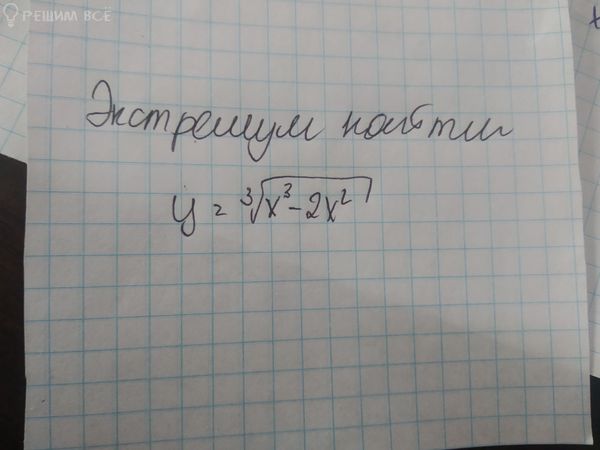 РЕШИМ ВСЁ
Экстремум найти
y = ∛(x³-2x²)